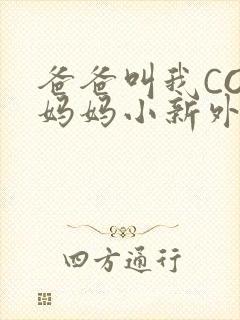 爸爸叫我CO
妈妈小新外
四方通行